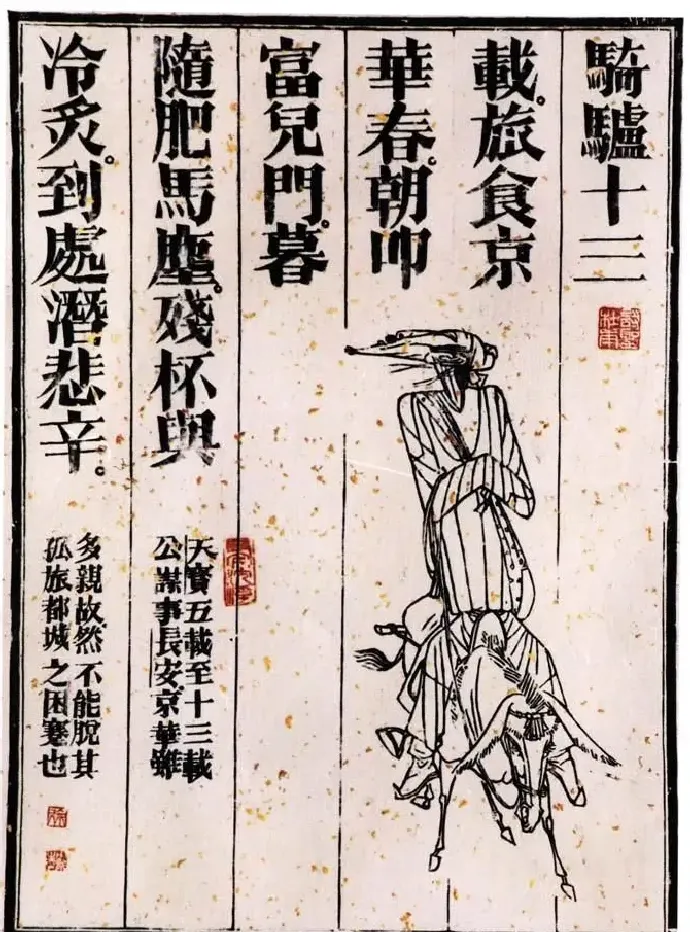 騎驢十三
載。旅食京
華春。朝叩
富兒門。暮
隨肥馬塵。殘杯與
冷炙。到處潛悲辛。
詩聖
杜甫
天寶五載至十三載
公謀事長安京華雖
多親故然不能脫其
孤旅都城之困蹇也